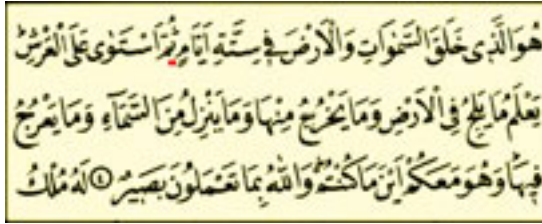 هُوَ الَّذِى خَلَقَ السَّمٰوَاتِ وَالْاَرْضَ فِى سِتَّةِ اَيَّامٍ ثُمَّ اسْتَوٰى عَلَى الْعَرْشِۜ
يَعْلَمُ مَا يَلِجُ فِى الْاَرْضِ وَمَا يَخْرُجُ مِنْهَا وَمَا يَنْزِلُ مِنَ السَّمَٓاءِ وَمَا يَعْرُجُ
فِيهَاۜ وَهُوَ مَعَكُمْ اَيْنَ مَا كُنْتُمْۜ وَاللّٰهُ بِمَا تَعْمَلُونَ بَصِيرٌ ﴿٤﴾ لَهُ مُلْكُ